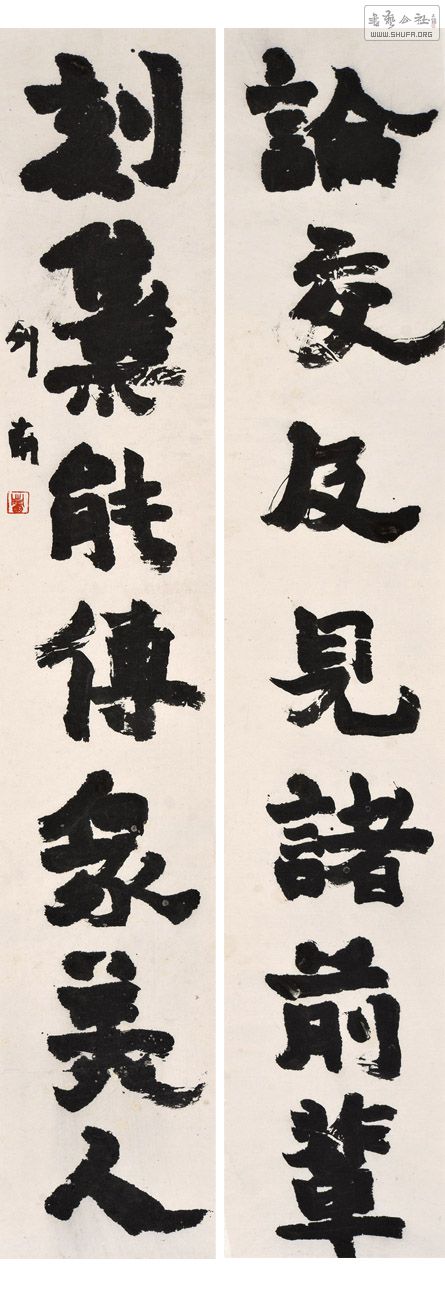 書藝公社
WWW.SHUFA.ORG
論交及見諸前輩
刻集能傳衆美人